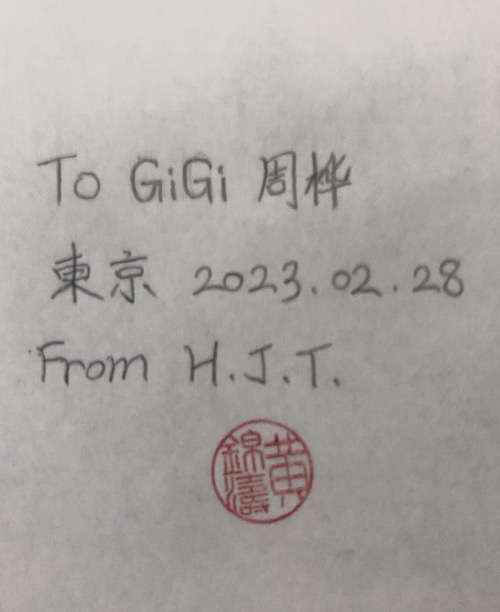 To GiGi 周桦
東京 2023.02.28
From H.J.T.
黄錦濤